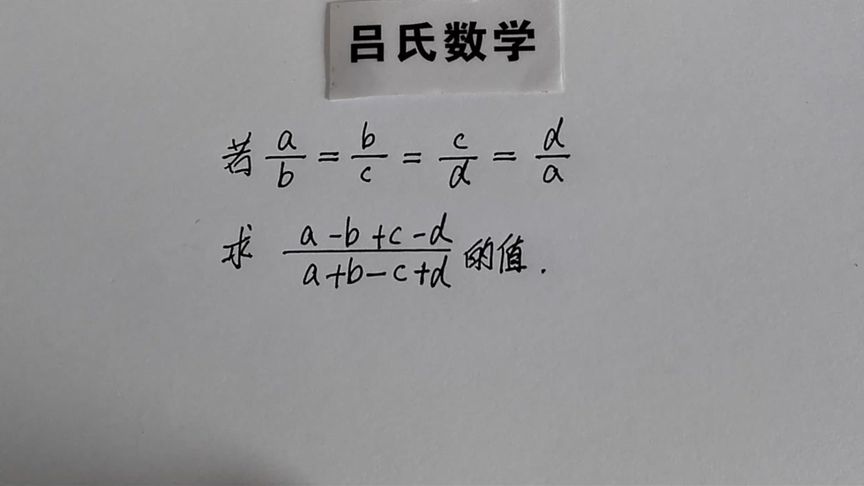 吕氏数学
若 a/b = b/c = c/d = d/a
求 (a-b+c-d)/(a+b-c+d) 的值.